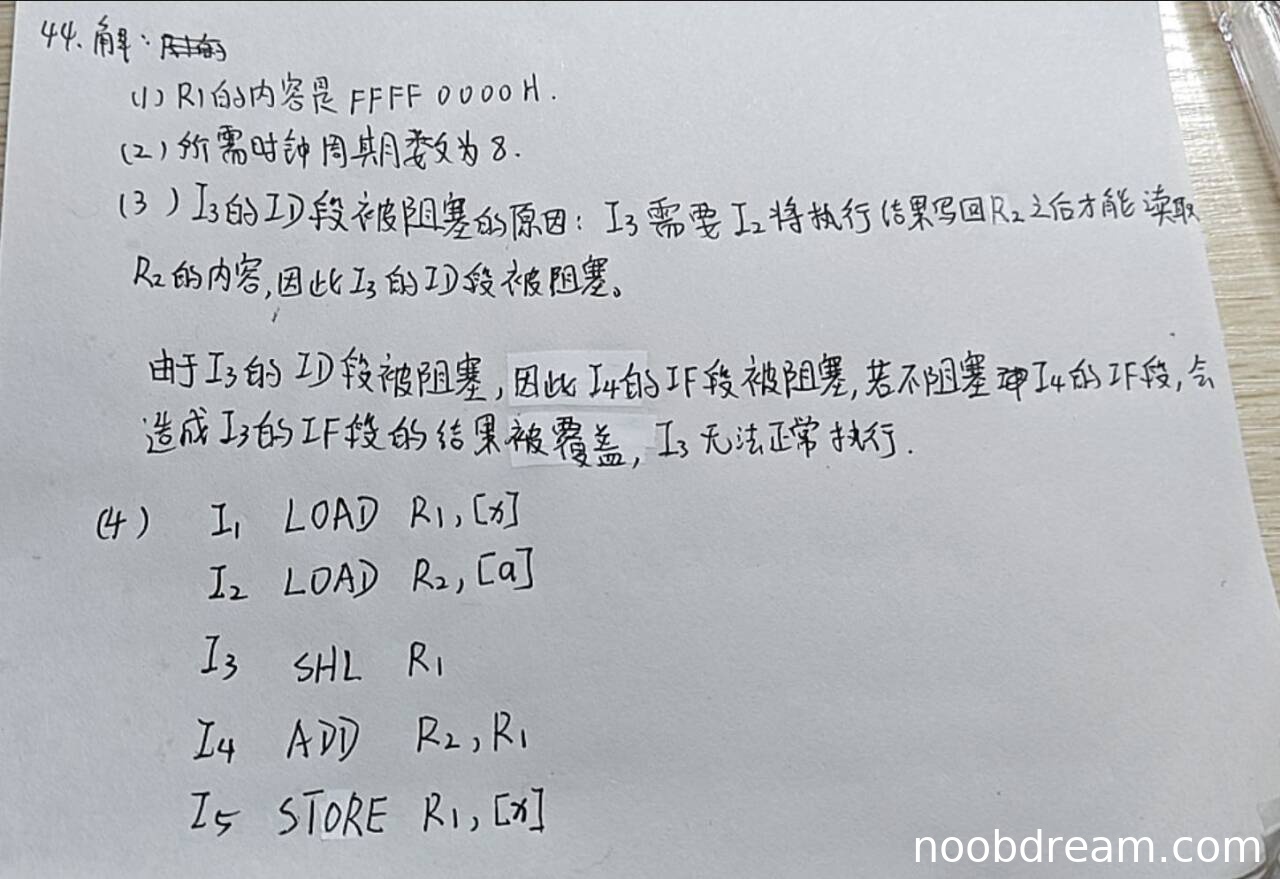 44. 解:
(1) R1的内容是 FFFF 0000H.
(2) 所需时钟周期数为8.
(3) I3的ID段被阻塞的原因: I3需要I2将执行结果写回R2之后才能读取
R2的内容,因此I3的ID段被阻塞。
由于I3的ID段被阻塞,因此I4的IF段被阻塞,若不阻塞I4的IF段,会
造成I3的IF段的结果被覆盖, I3无法正常执行.
(4) I1 LOAD R1, [x]
I2 LOAD R2, [a]
I3 SHL R1
I4 ADD R2, R1
I5 STORE R1, [x]
noobdream.com